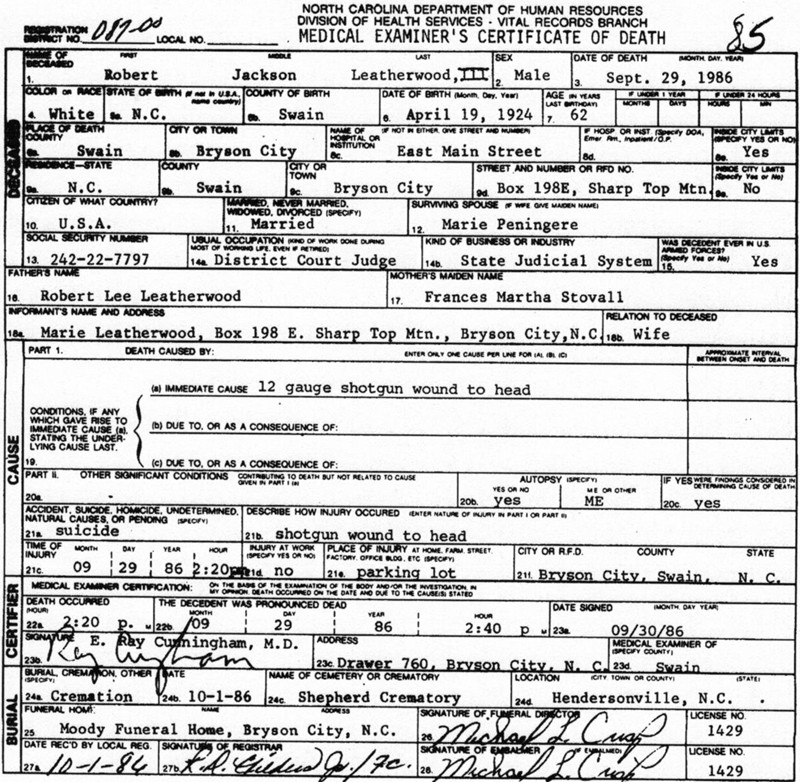 NORTH CAROLINA DEPARTMENT OF HUMAN RESOURCES
DIVISION OF HEALTH SERVICES - VITAL RECORDS BRANCH
REGISTRATION DISTRICT NO. 087-00 LOCAL NO.
MEDICAL EXAMINER'S CERTIFICATE OF DEATH 85
DECEASED
NAME OF DECEASED FIRST MIDDLE LAST SEX DATE OF DEATH (MONTH, DAY, YEAR)
1. Robert Jackson Leatherwood, III 2. Male 3. Sept. 29, 1986
COLOR OR RACE STATE OF BIRTH (If not in U.S.A., name country) COUNTY OF BIRTH DATE OF BIRTH (Month, Day, Year) AGE (IN YEARS LAST BIRTHDAY) IF UNDER 1 YEAR MONTHS DAYS IF UNDER 24 HOURS HOURS MIN
4. White 5a. N.C. 5b. Swain 6. April 19, 1924 7. 62
PLACE OF DEATH COUNTY CITY OR TOWN NAME OF HOSPITAL OR INSTITUTION (IF NOT IN EITHER, GIVE STREET AND NUMBER) IF HOSP OR INST. (Specify DOA, Emer. Rm., Inpatient/O.P.) INSIDE CITY LIMITS (SPECIFY YES OR NO)
8a. Swain 8b. Bryson City 8c. East Main Street 8d. 8e. Yes
RESIDENCE-STATE COUNTY CITY OR TOWN STREET AND NUMBER OR RFD NO. INSIDE CITY LIMITS (Specify Yes or No)
9a. N.C. 9b. Swain 9c. Bryson City 9d. Box 198E, Sharp Top Mtn. 9e. No
CITIZEN OF WHAT COUNTRY? MARRIED, NEVER MARRIED, WIDOWED, DIVORCED (SPECIFY) SURVIVING SPOUSE (IF WIFE GIVE MAIDEN NAME)
10. U.S.A. 11. Married 12. Marie Peningere
SOCIAL SECURITY NUMBER USUAL OCCUPATION (KIND OF WORK DONE DURING MOST OF WORKING LIFE, EVEN IF RETIRED) KIND OF BUSINESS OR INDUSTRY WAS DECEDENT EVER IN U.S. ARMED FORCES? (Specify Yes or No)
13. 242-22-7797 14a. District Court Judge 14b. State Judicial System 15. Yes
FATHER'S NAME MOTHER'S MAIDEN NAME
16. Robert Lee Leatherwood 17. Frances Martha Stovall
INFORMANT'S NAME AND ADDRESS RELATION TO DECEASED
18a. Marie Leatherwood, Box 198 E. Sharp Top Mtn., Bryson City, N.C. 18b. Wife
CAUSE
PART 1. DEATH CAUSED BY: ENTER ONLY ONE CAUSE PER LINE FOR (A), (B), (C) APPROXIMATE INTERVAL BETWEEN ONSET AND DEATH
(a) IMMEDIATE CAUSE 12 gauge shotgun wound to head
CONDITIONS, IF ANY WHICH GAVE RISE TO IMMEDIATE CAUSE (a), STATING THE UNDER- LYING CAUSE LAST.
(b) DUE TO, OR AS A CONSEQUENCE OF:
19. (c) DUE TO, OR AS A CONSEQUENCE OF:
PART II. OTHER SIGNIFICANT CONDITIONS CONTRIBUTING TO DEATH BUT NOT RELATED TO CAUSE GIVEN IN PART I (a) AUTOPSY (SPECIFY) YES OR NO ME OR OTHER IF YES WERE FINDINGS CONSIDERED IN DETERMINING CAUSE OF DEATH
20a. 20b. yes ME 20c. yes
ACCIDENT, SUICIDE, HOMICIDE, UNDETERMINED, NATURAL CAUSES, OR PENDING (SPECIFY) DESCRIBE HOW INJURY OCCURED (ENTER NATURE OF INJURY IN PART I OR PART II)
21a. suicide 21b. shotgun wound to head
TIME OF INJURY MONTH DAY YEAR HOUR INJURY AT WORK (SPECIFY YES OR NO) PLACE OF INJURY AT HOME, FARM, STREET, FACTORY, OFFICE BLDG., ETC (SPECIFY) CITY OR R.F.D. COUNTY STATE
21c. 09 29 86 2:20pm 21d. no 21e. parking lot 21f. Bryson City, Swain, N. C.
CERTIFIER
MEDICAL EXAMINER CERTIFICATION: ON THE BASIS OF THE EXAMINATION OF THE BODY AND/OR THE INVESTIGATION, IN MY OPINION, DEATH OCCURRED ON THE DATE AND DUE TO THE CAUSE(S) STATED
DEATH OCCURRED (HOUR) THE DECEDENT WAS PRONOUNCED DEAD MONTH DAY YEAR HOUR DATE SIGNED (MONTH, DAY, YEAR)
22a. 2:20 p. M 22b. 09 29 86 2:40 p M 23a. 09/30/86
SIGNATURE E. Ray Cunningham, M.D. ADDRESS MEDICAL EXAMINER OF (SPECIFY COUNTY)
23b. Ray Cunningham 23c. Drawer 760, Bryson City, N. C. 23d. Swain
BURIAL
BURIAL, CREMATION, OTHER (SPECIFY) DATE NAME OF CEMETERY OR CREMATORY LOCATION (CITY, TOWN OR COUNTY) (STATE)
24a. Cremation 24b. 10-1-86 24c. Shepherd Crematory 24d. Hendersonville, N.C.
FUNERAL HOME: NAME ADDRESS SIGNATURE OF FUNERAL DIRECTOR LICENSE NO.
25 Moody Funeral Home, Bryson City, N.C. 26. Michael L. Crisp 1429
DATE REC'D BY LOCAL REG. SIGNATURE OF REGISTRAR SIGNATURE OF EMBALMER (IF EMBALMED) LICENSE NO.
27a. 10-1-86 27b. 28. Michael L. Crisp 1429